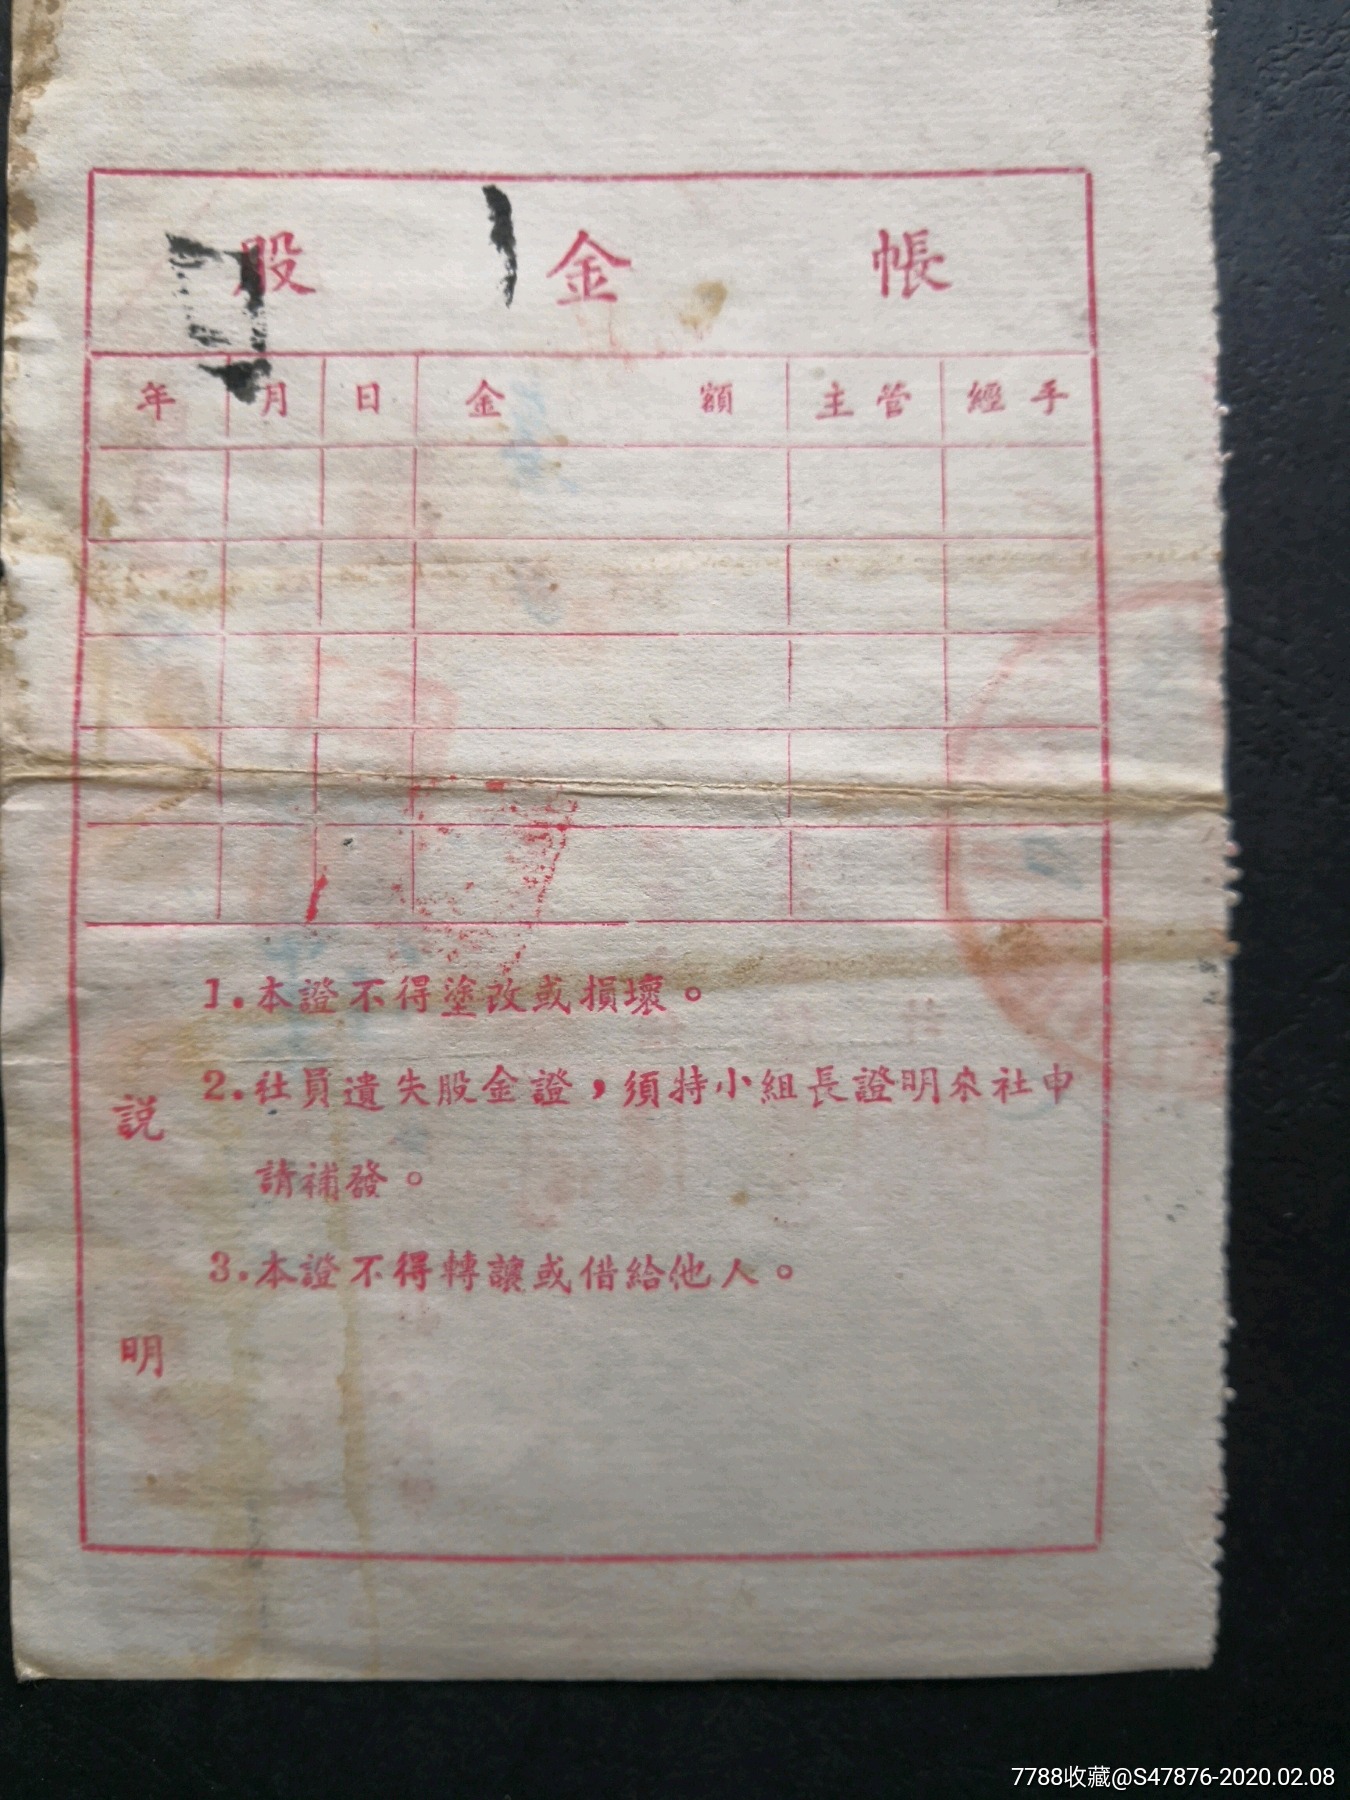 股金帳
年 月 日 金額 主管 經手
說明
1.本證不得塗改或損壞。
2.社員遺失股金證，須持小組長證明來社申
請補發。
3.本證不得轉讓或借給他人。
7788收藏@S47876-2020.02.08